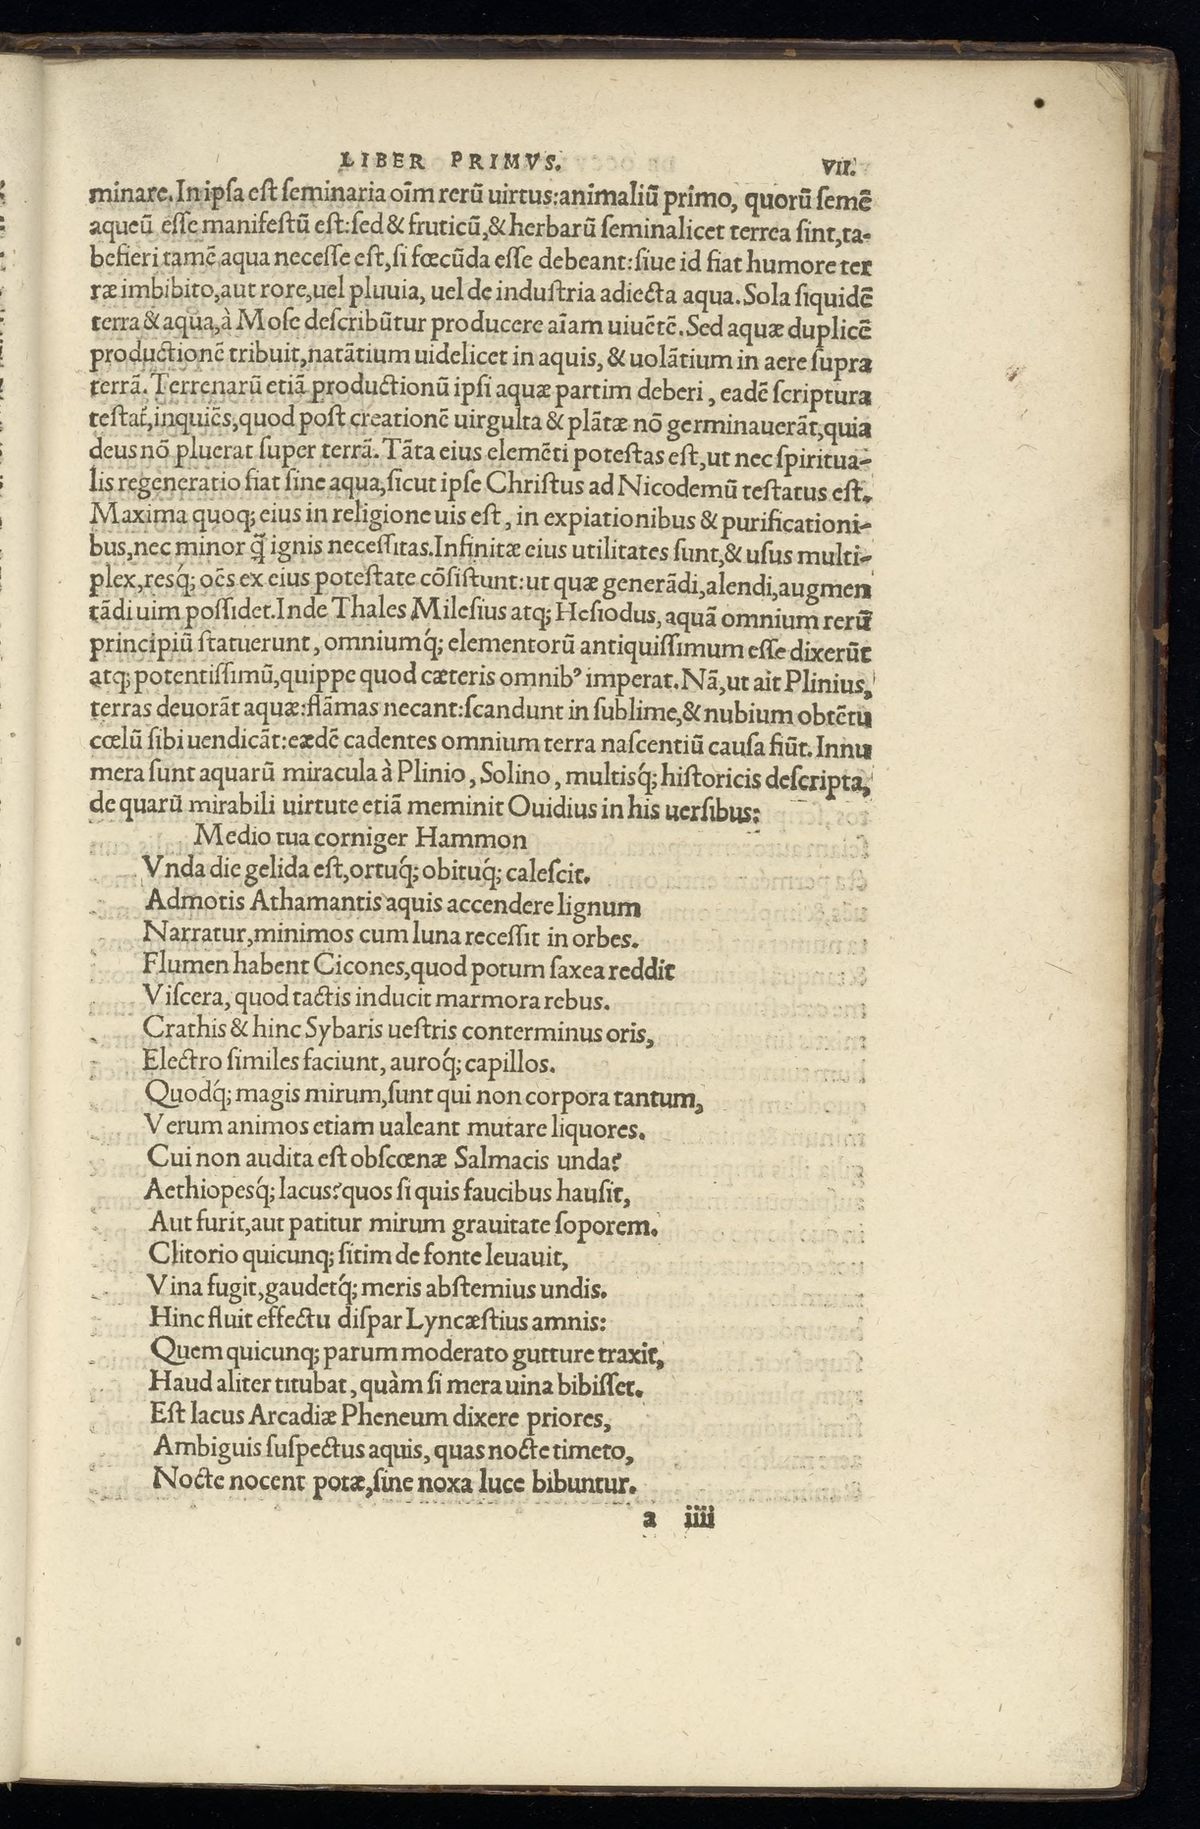 LIBER PRIMVS. VII.
minare. In ipſa eſt ſeminaria oīm rerū uirtus: animaliū primo, quorū ſemē
aqueū eſſe manifeſtū eſt: ſed & fruticū, & herbarū ſeminalicet terrea ſint, ta-
befieri tamē aqua neceſſe eſt, ſi fœcūda eſſe debeant: ſiue id fiat humore ter
ræ imbibito, aut rore, uel pluuia, uel de induſtria adiecta aqua. Sola ſiquidē
terra & aqua, à Moſe deſcribūtur producere aīam uiuētē. Sed aquæ duplicē
productionē tribuit, natātium uidelicet in aquis, & uolātium in aere ſupra
terrā. Terrenarū etiā productionū ipſi aquæ partim deberi, eadē ſcriptura
teſtat̃, inquiēs, quod poſt creationē uirgulta & plātæ nō germinauerāt, quia
deus nō pluerat ſuper terrā. Tāta eius elemēti poteſtas eſt, ut nec ſpiritua-
lis regeneratio fiat ſine aqua, ſicut ipſe Chriſtus ad Nicodemū teſtatus eſt.
Maxima quoq; eius in religione uis eſt, in expiationibus & purificationi-
bus, nec minor q̃ ignis neceſſitas. Infinitæ eius utilitates ſunt, & uſus multi-
plex, resq́; oēs ex eius poteſtate cōſiſtunt: ut quæ generādi, alendi, augmen
tādi uim poſſidet. Inde Thales Mileſius atq; Heſiodus, aquā omnium rerū
principiū ſtatuerunt, omniumq́; elementorū antiquiſſimum eſſe dixerūt
atq; potentiſſimū, quippe quod cæteris omnibꝰ imperat. Nā, ut ait Plinius,
terras deuorāt aquæ: flāmas necant: ſcandunt in ſublime, & nubium obtētu
cœlū ſibi uendicāt: eædē cadentes omnium terra naſcentiū cauſa fiūt. Innu
mera ſunt aquarū miracula à Plinio, Solino, multisq́; hiſtoricis deſcripta,
de quarū mirabili uirtute etiā meminit Ouidius in his uerſibus:
Medio tua corniger Hammon
Vnda die gelida eſt, ortuq́; obituq́; caleſcit.
Admotis Athamantis aquis accendere lignum
Narratur, minimos cum luna receſſit in orbes.
Flumen habent Cicones, quod potum ſaxea reddit
Viſcera, quod tactis inducit marmora rebus.
Crathis & hinc Sybaris ueſtris conterminus oris,
Electro ſimiles faciunt, auroq́; capillos.
Quodq́; magis mirum, ſunt qui non corpora tantum,
Verum animos etiam ualeant mutare liquores.
Cui non audita eſt obſcœnæ Salmacis unda?
Aethiopesq́; lacus? quos ſi quis faucibus hauſit,
Aut furit, aut patitur mirum grauitate ſoporem.
Clitorio quicunq; ſitim de fonte leuauit,
Vina fugit, gaudetq́; meris abſtemius undis.
Hinc fluit effectu diſpar Lyncæſtius amnis:
Quem quicunq; parum moderato gutture traxit,
Haud aliter titubat, quàm ſi mera uina bibiſſet.
Eſt lacus Arcadiæ Pheneum dixere priores,
Ambiguis ſuſpectus aquis, quas nocte timeto,
Nocte nocent potæ, ſine noxa luce bibuntur.
a iiii